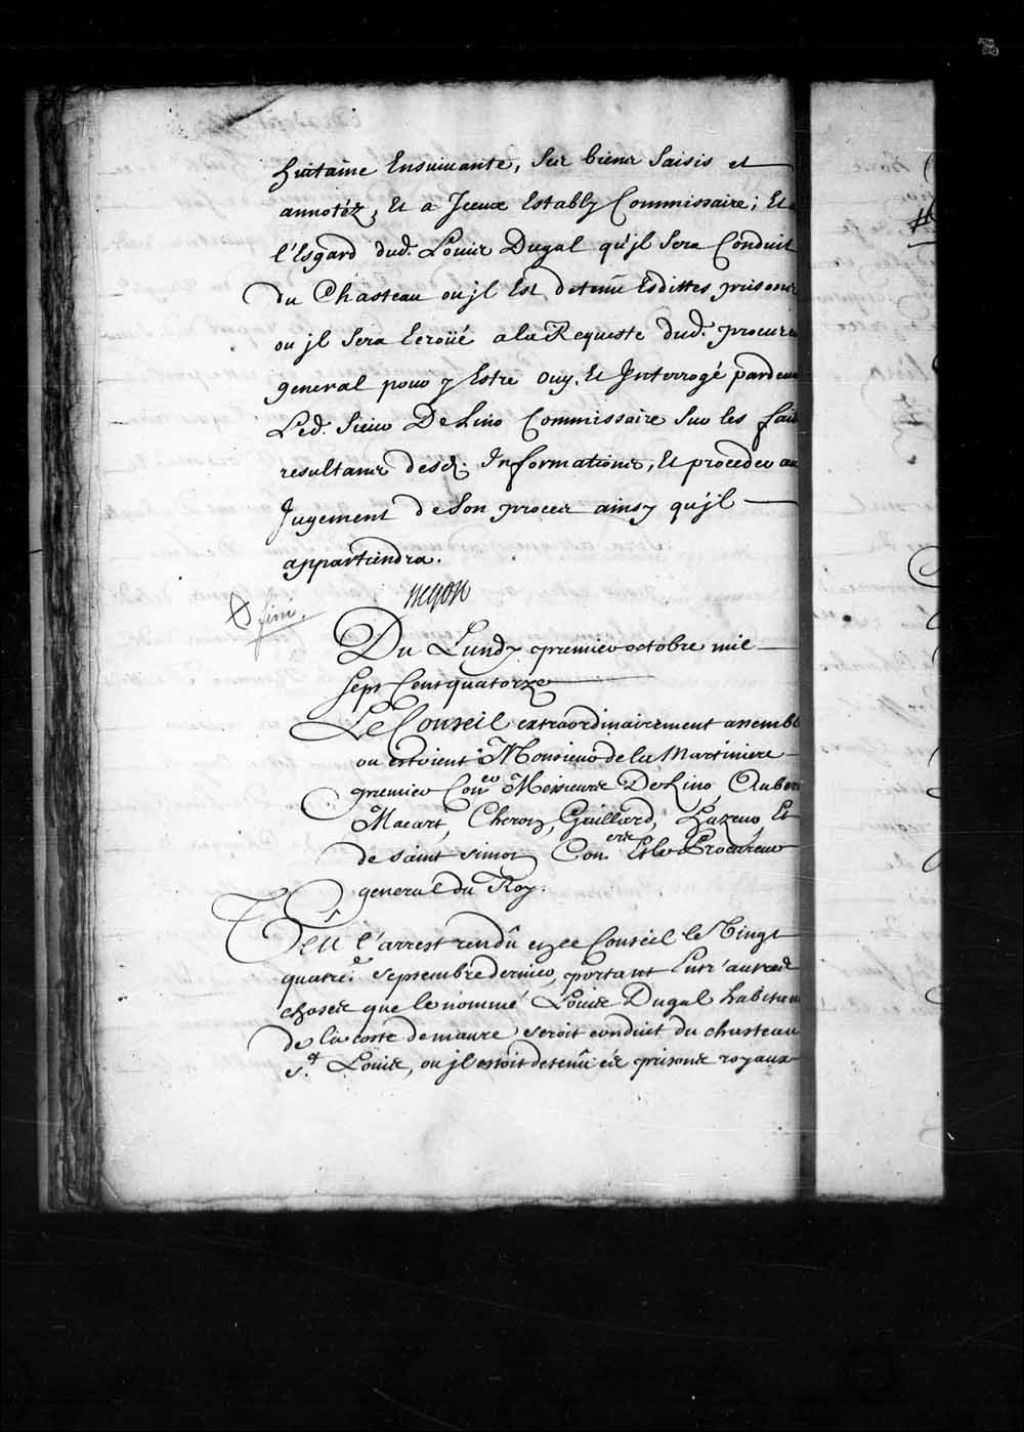 huitaine Ensuivante, Ses biens Saisis et
annotéz, Et a Jceux Estably Commissaire; Et a
l'Esgard dud. Louis Dugal qu'jl Sera Conduit
du Chasteau ou jl Est detenû Esdittes prisons
ou jl Sera Ecroüé a la Requeste dud. procureu
general pour y Estre ouy, Et Jnterrogé pardeva
Led. Sieur De Lino Commissaire Sur les fait
resultans desd. Informations, Et procedé au
Jugement de Son procez ainsy qu'jl
appartiendra.
fini.
Du Lundy premier octobre mil
sept Cent quatorze
Le Conseil extraordinairement assemblé
ou estoient Monsieur de la Martiniere
premier Con.er Messieurs De Lino, Auber
Macart, Cheron, Gaillard, Hazeur, Et
de Saint Simon Con.ers Et le Procureur
general du Roy.
Veu l'arrest rendû en ce Conseil le Vingt
quatre.e Septembre dernier, portant Entr'autres
choses que le nommé Louis Dugal habitant
de la coste de maure seroit conduit du chasteau
S.t Louis, ou jl estoit detenû és prisons royaux